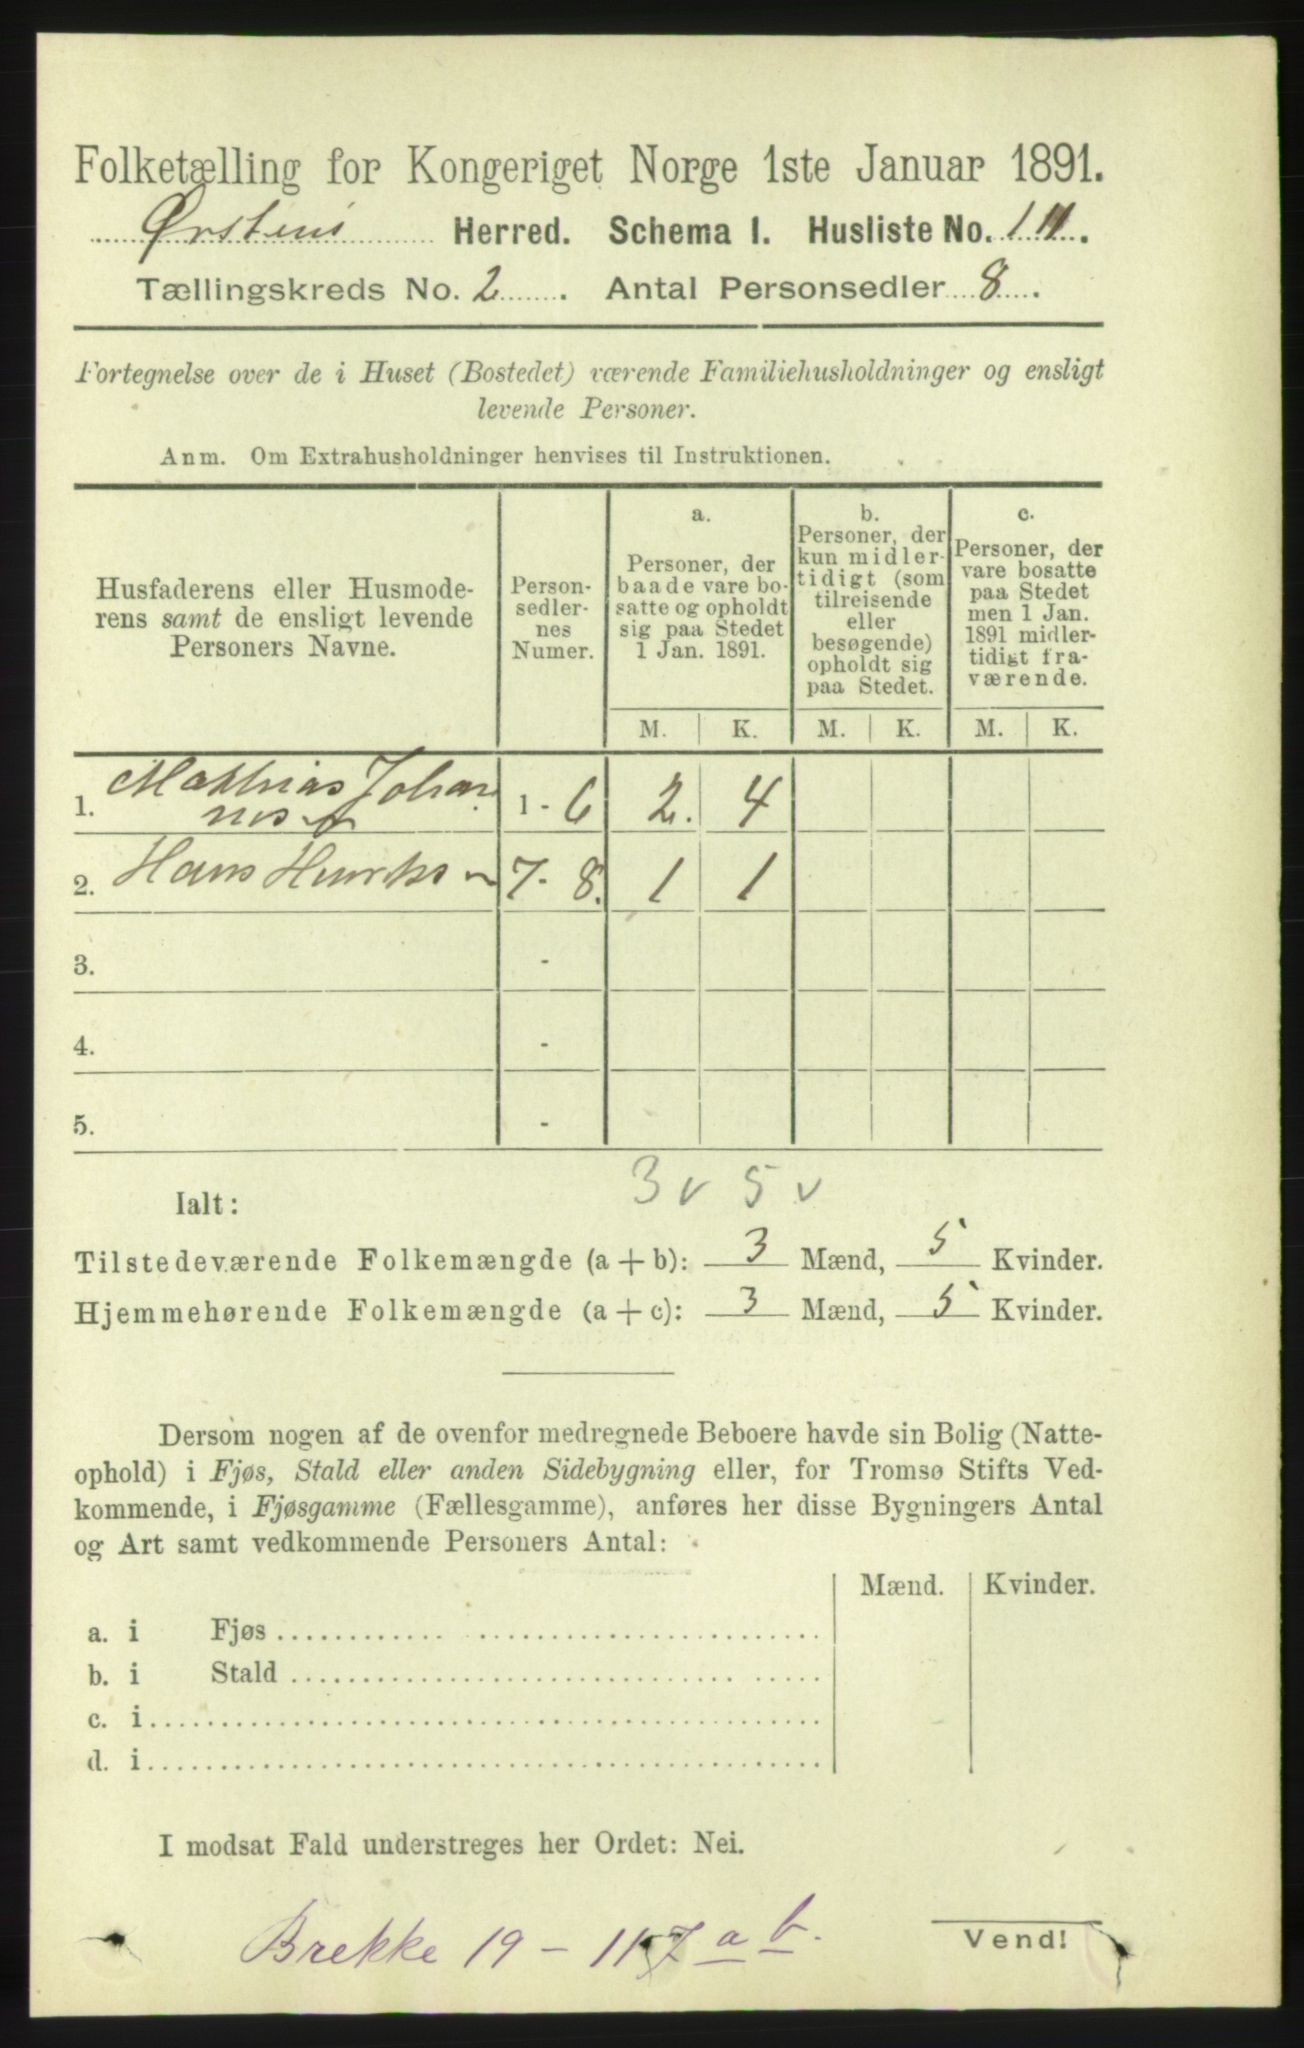 Folketælling for Kongeriget Norge 1ste Januar 1891.
Ørstens Herred. Schema I. Husliste No. 111.
Tællingskreds No. 2. Antal Personsedler 8.
Fortegnelse over de i Huset (Bostedet) værende Familiehusholdninger og ensligt
levende Personer.
Anm. Om Extrahusholdninger henvises til Instruktionen.
Husfaderens eller Husmode-
rens samt de ensligt levende
Personers Navne.
Person-
sedler-
nes
Numer.
a.
Personer, der
baade vare bo-
satte og opholdt
sig paa Stedet
1 Jan. 1891.
b.
Personer, der
kun midler-
tidigt (som
tilreisende
eller
besøgende)
opholdt sig
paa Stedet.
c.
Personer, der
vare bosatte
paa Stedet
men 1 Jan.
1891 midler-
tidigt fra-
værende.
M. K. M. K. M. K.
1. Mathias Johan
nes 1 - 6 2. 4
2. Hans 7 - 8. 1 1
3. -
4. -
5. -
3 v 5 v
Ialt:
Tilstedeværende Folkemængde (a + b): 3 Mænd, 5 Kvinder.
Hjemmehørende Folkemængde (a + c): 3 Mænd, 5 Kvinder.
Dersom nogen af de ovenfor medregnede Beboere havde sin Bolig (Natte-
ophold) i Fjøs, Stald eller anden Sidebygning eller, for Tromsø Stifts Ved-
kommende, i Fjøsgamme (Fællesgamme), anføres her disse Bygningers Antal
og Art samt vedkommende Personers Antal:
Mænd. Kvinder.
a. i Fjøs
b. i Stald
c. i
d. i
I modsat Fald understreges her Ordet: Nei.
Brekke 19 - 117 a b.
Vend!